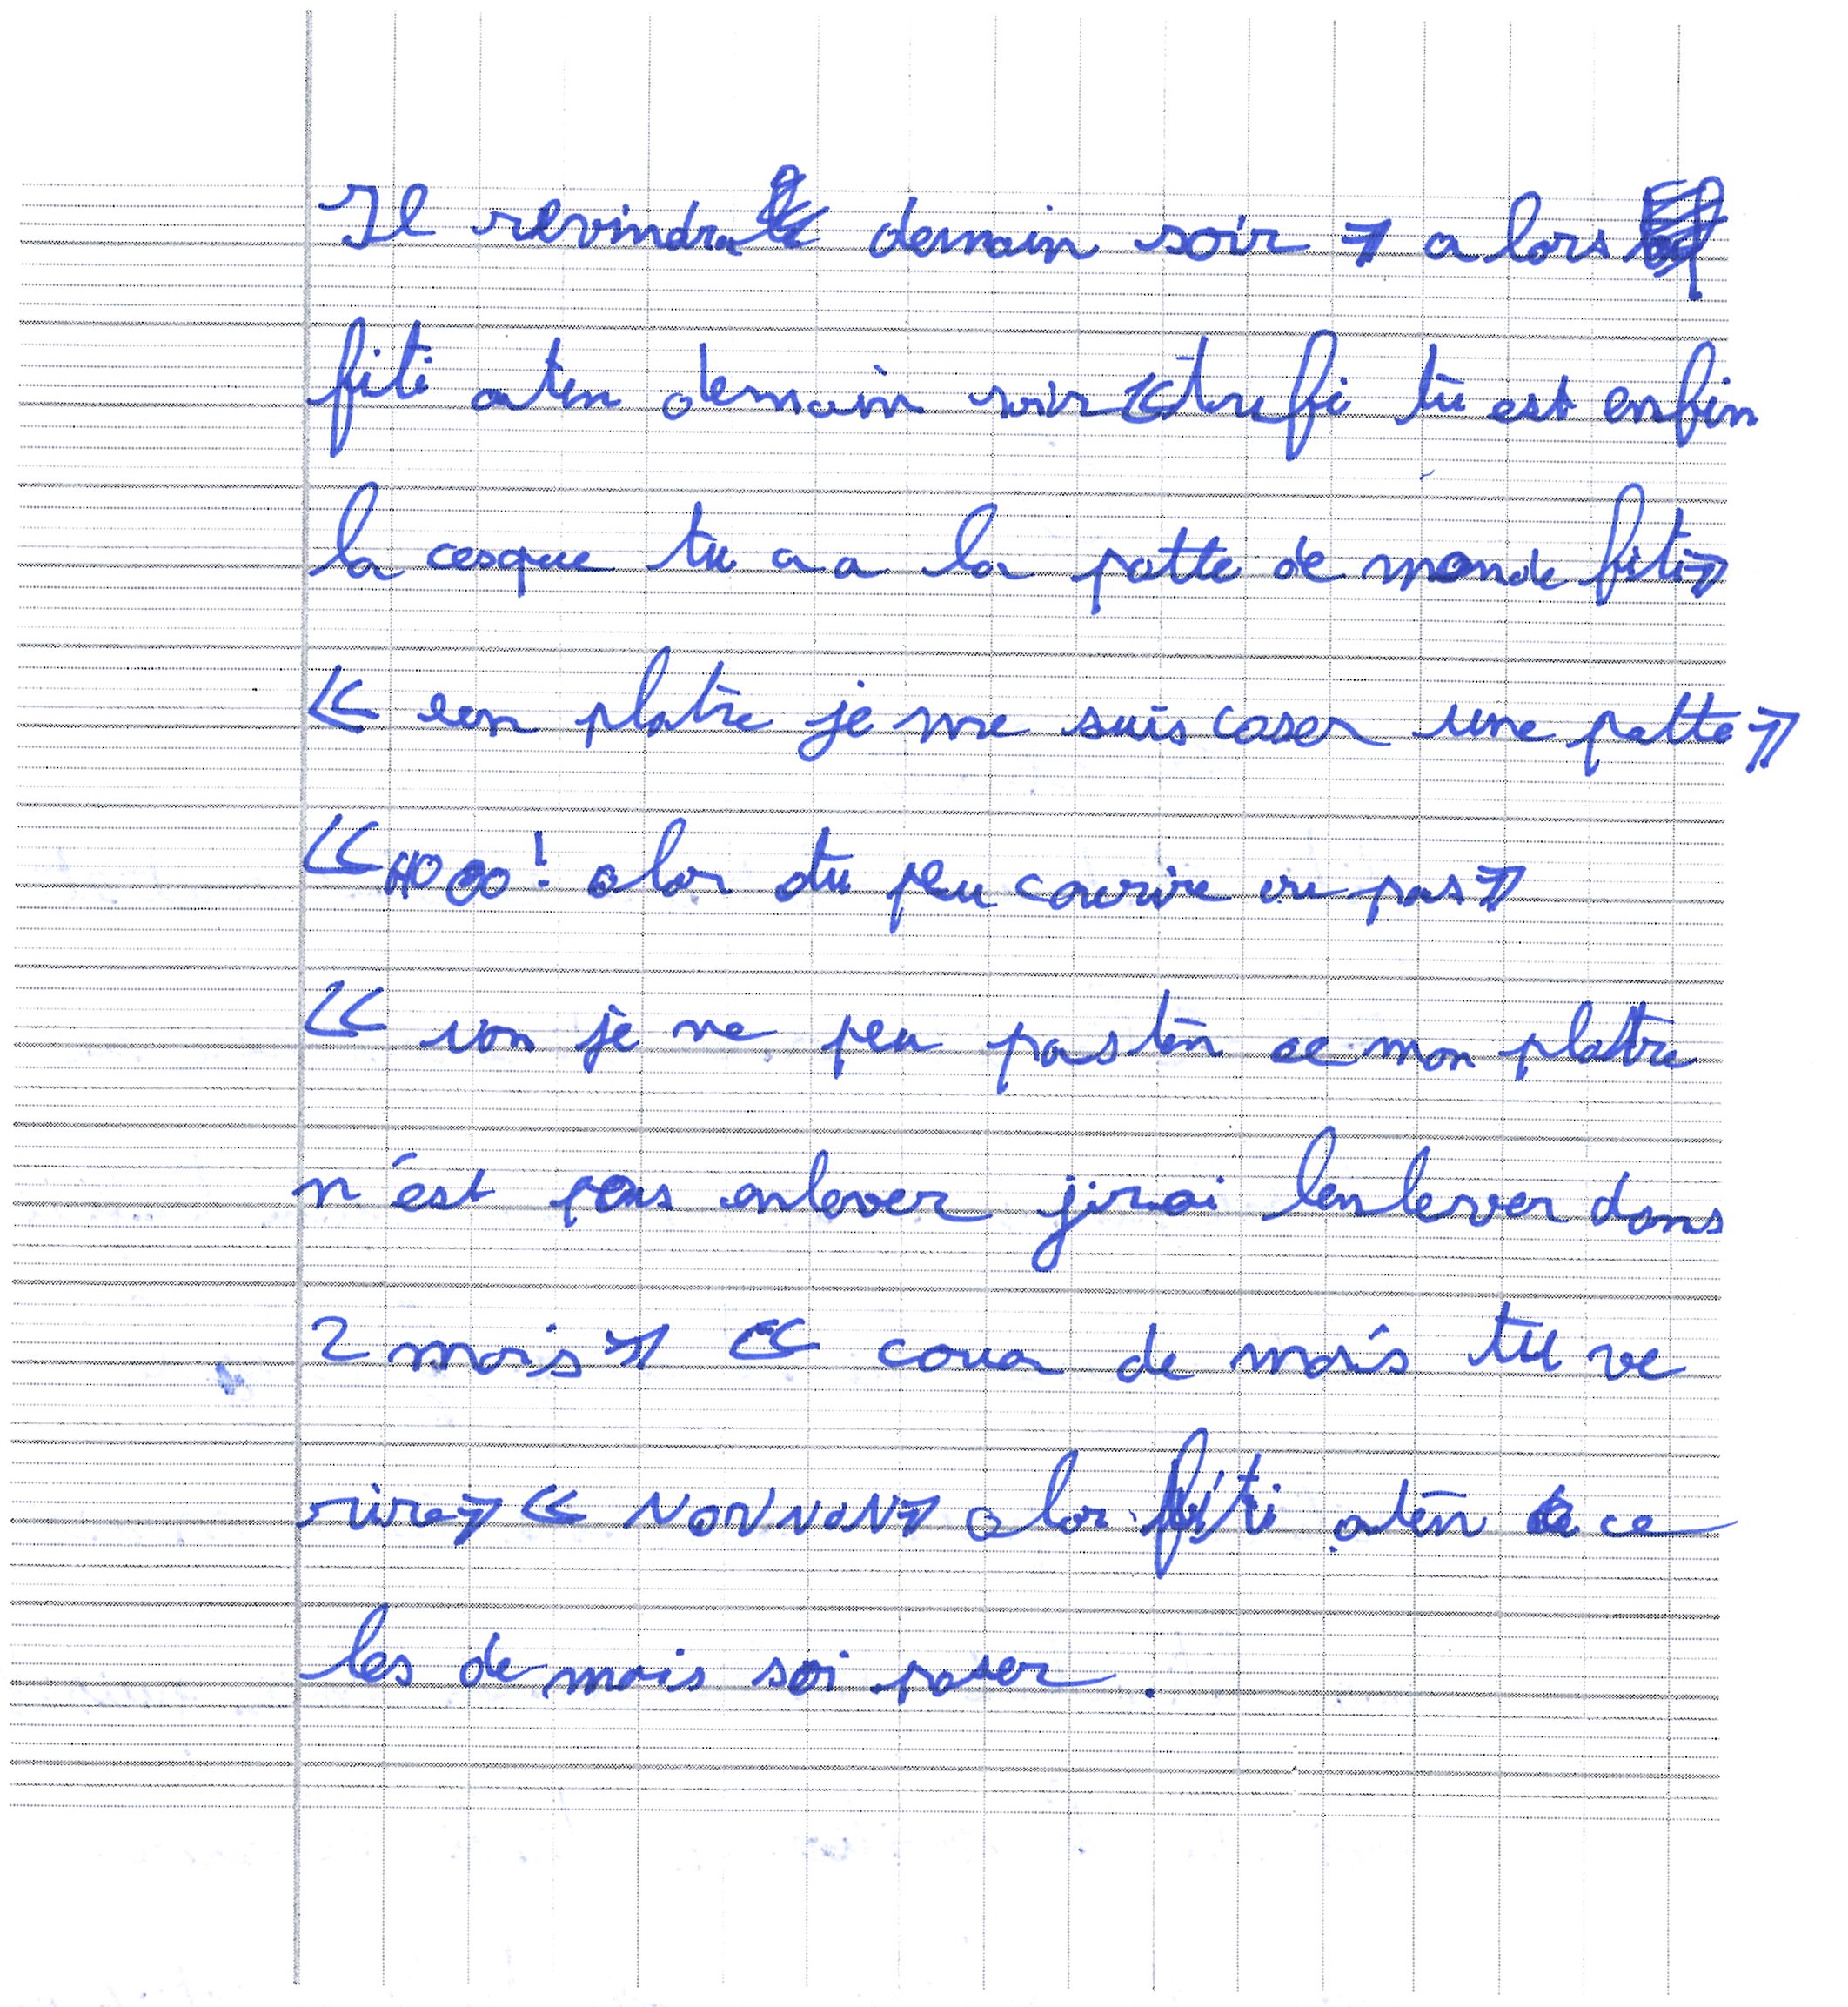 Il revindra demain soir » a lors
fiti aten demain soir « trufi tu est enfin
la cesque tu a a la patte de monde fiti »
« un platre je me suis caser une patte »
« HOOO! alor tu peu courire ou pas »
« non je ne peu pas ten ce mon platre
n'est pas enlever jirai lenlever dans
2 mois » « coua de mois tu ve
rire » « NONNON » alor fiti aten ce
les de mois soi paser.